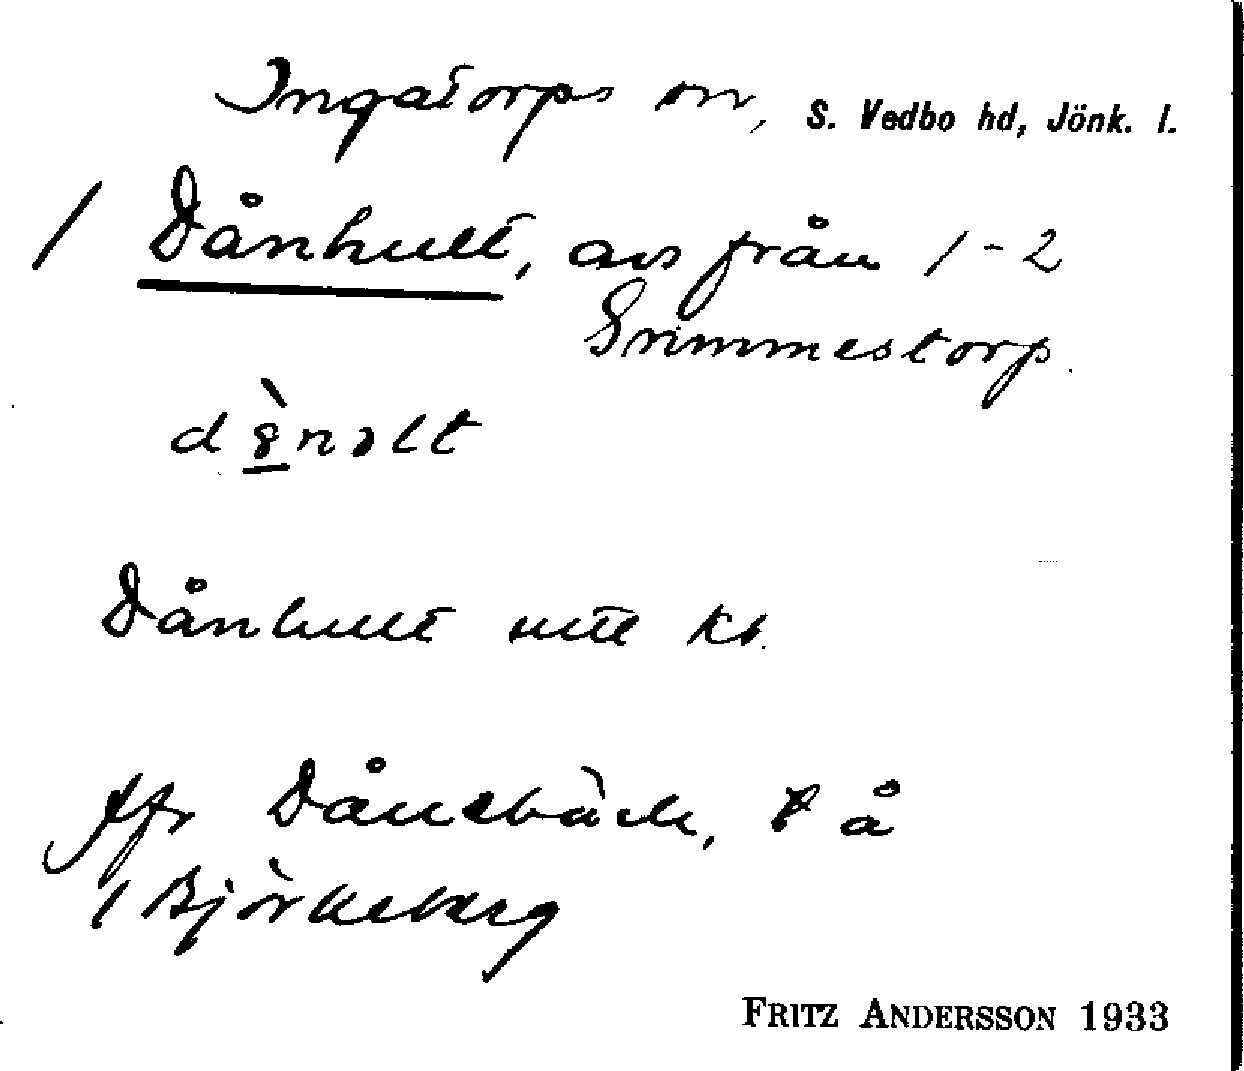 Ingatorps sn, S. Vedbo hd, Jönk. l.
/ Dånhult, avs från 1-2
Grimmestorp.
Dånhult utt kb.
Jfr Dånebäck, t å
/ Björkeberg
FRITZ ANDERSSON 1933